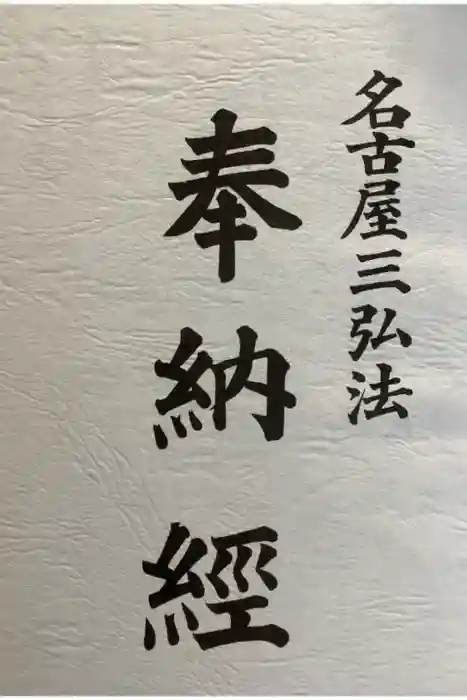 名古屋三弘法
奉納經